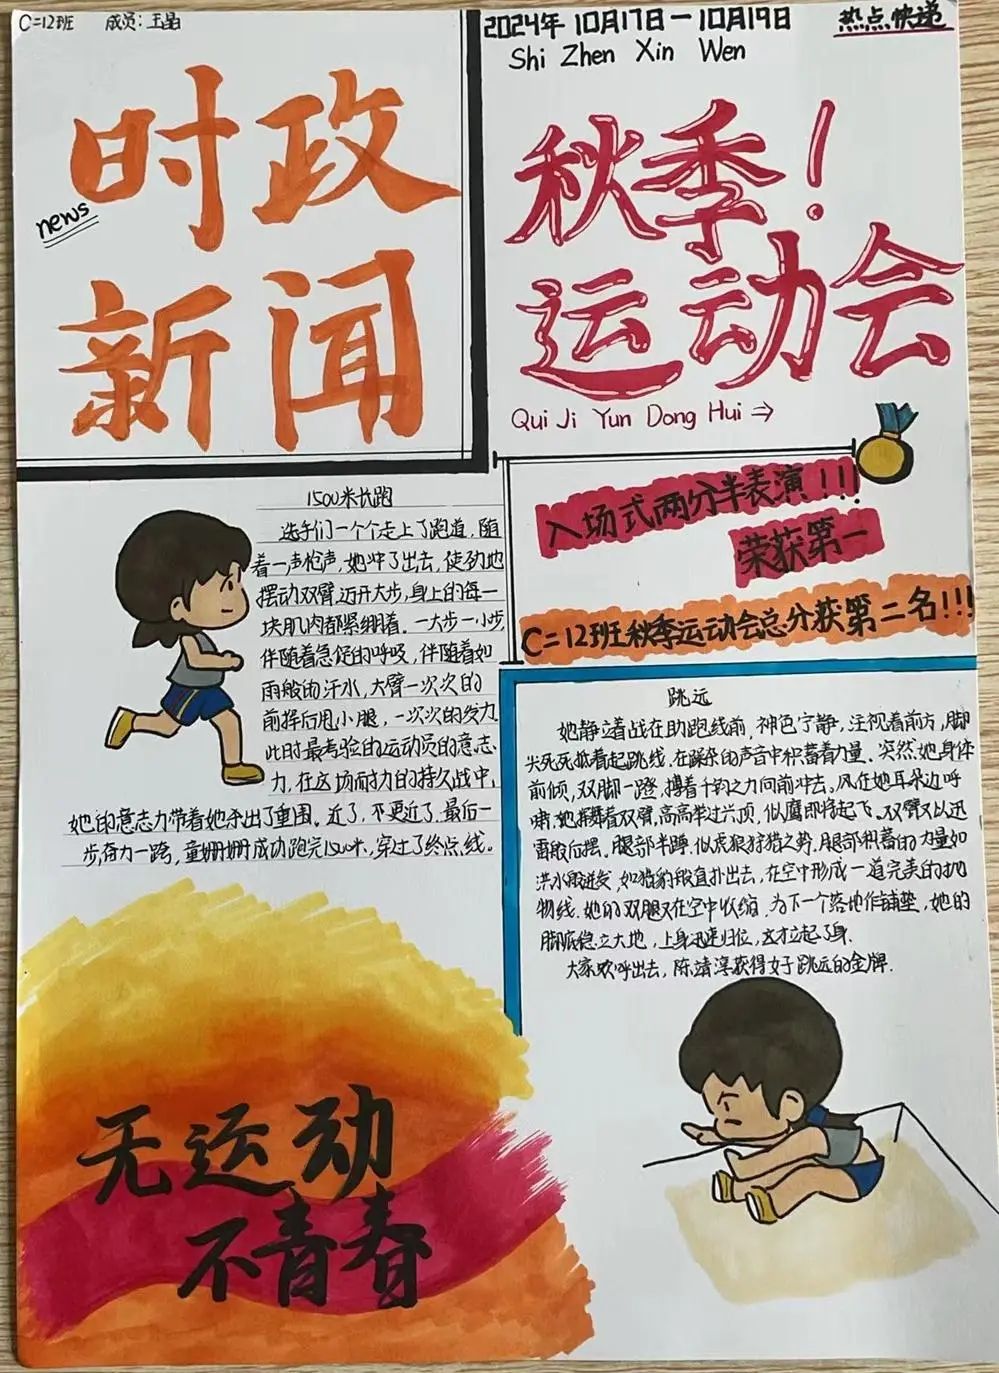 C=12班 成员:王晶
时政
news
新闻
2024年10月17日-10月19日
热点快递
Shi Zhen Xin Wen
秋季!
运动会
Qui Ji Yun Dong Hui ⇒
入场式两分半表演!!!
荣获第一
C=12班秋季运动会总分获第二名!!!
1500米长跑
选手们一个个走上了跑道,随
着一声枪声,她冲了出去,使劲地
摆动双臂,迈开大步,身上的每一
块肌肉都紧绷着。一大步一小步
伴随着急促的呼吸,伴随着如
雨般的汗水,大臂一次次的
前挥后甩小腿,一次次的发力
此时最考验的运动员的意志
力,在这场耐力的持久战中,
她的意志力带着她杀出了重围。近了,不更近了,最后一
步奋力一跨,童姗姗成功跑完1500米,穿过了终点线。
跳远
她静立着战在助跑线前,神色宁静,注视着前方,脚
尖死死抵着起跳线,在踩杂的声音中积蓄着力量。突然,她身体
前倾,双脚一蹬,携着千钧之力向前冲去。风在她耳朵边呼
啸,她挥舞着双臂,高高举过六顶,似鹰即将起飞。双臂又以迅
雷般后摆。腿部半蹲,似虎狼狩猎之势,腿部积蓄的力量如
洪水般迸发,如猎豹般直扑出去,在空中形成一道完美的抛
物线,她的双腿又在空中收缩,为下一个落地作铺垫,她的
脚底稳立大地,上身迅速归位,这才立起了身.
大家欢呼出去,陈靖淳获得女子跳远的金牌.
无运动
不青春